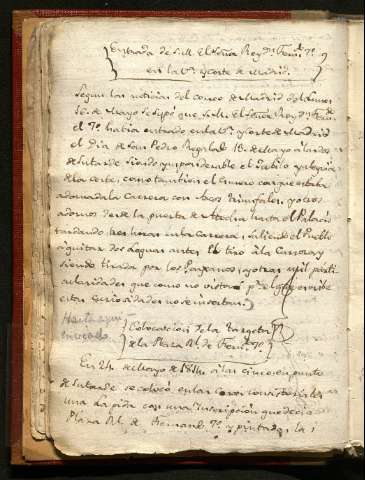 Entrada de S.M. El Señor Rey Dn. Ferndo. 7º
en la Va. y Corte de Madrid.
Segun las noticias del correo de Madrid del Lunes
16. de Mayo se supo que S.M. El Señor Rey Dn. Ferndo.
el 7º. havia entrado en la Va. y Corte de Madrid
el Dia de San Pedro Regalado 13. de Mayo a las dos
de la tarde siendo ynponderable el Jubilo y alegria
de la corte, como tambien el esmero con que estaba
adornada la Carrera con Arcos triunfales, y otros
adornos desde la puerta de Atocha hasta el Palacio
tardando tres horas en la Carrera, saliendo el Pueblo
a quitar dos leguas antes el tiro a la Carroza y
siendo tirada por los Paysanos, y otras mil parti-
cularidades que como no vistas pr. el que escribe
estas curiosidades no se insertan.
Hasta aqui
enviado.
Colocacion de la Targeta
de la Plaza Rl. de Ferndo. 7º.
En 24 de Mayo de 1814 a las cinco en punto
de la tarde se colocó en las casas consistoriales
una Lapida con una Inscripcion que decia
Plaza Rl. de Fernando 7º. y pintadas la i